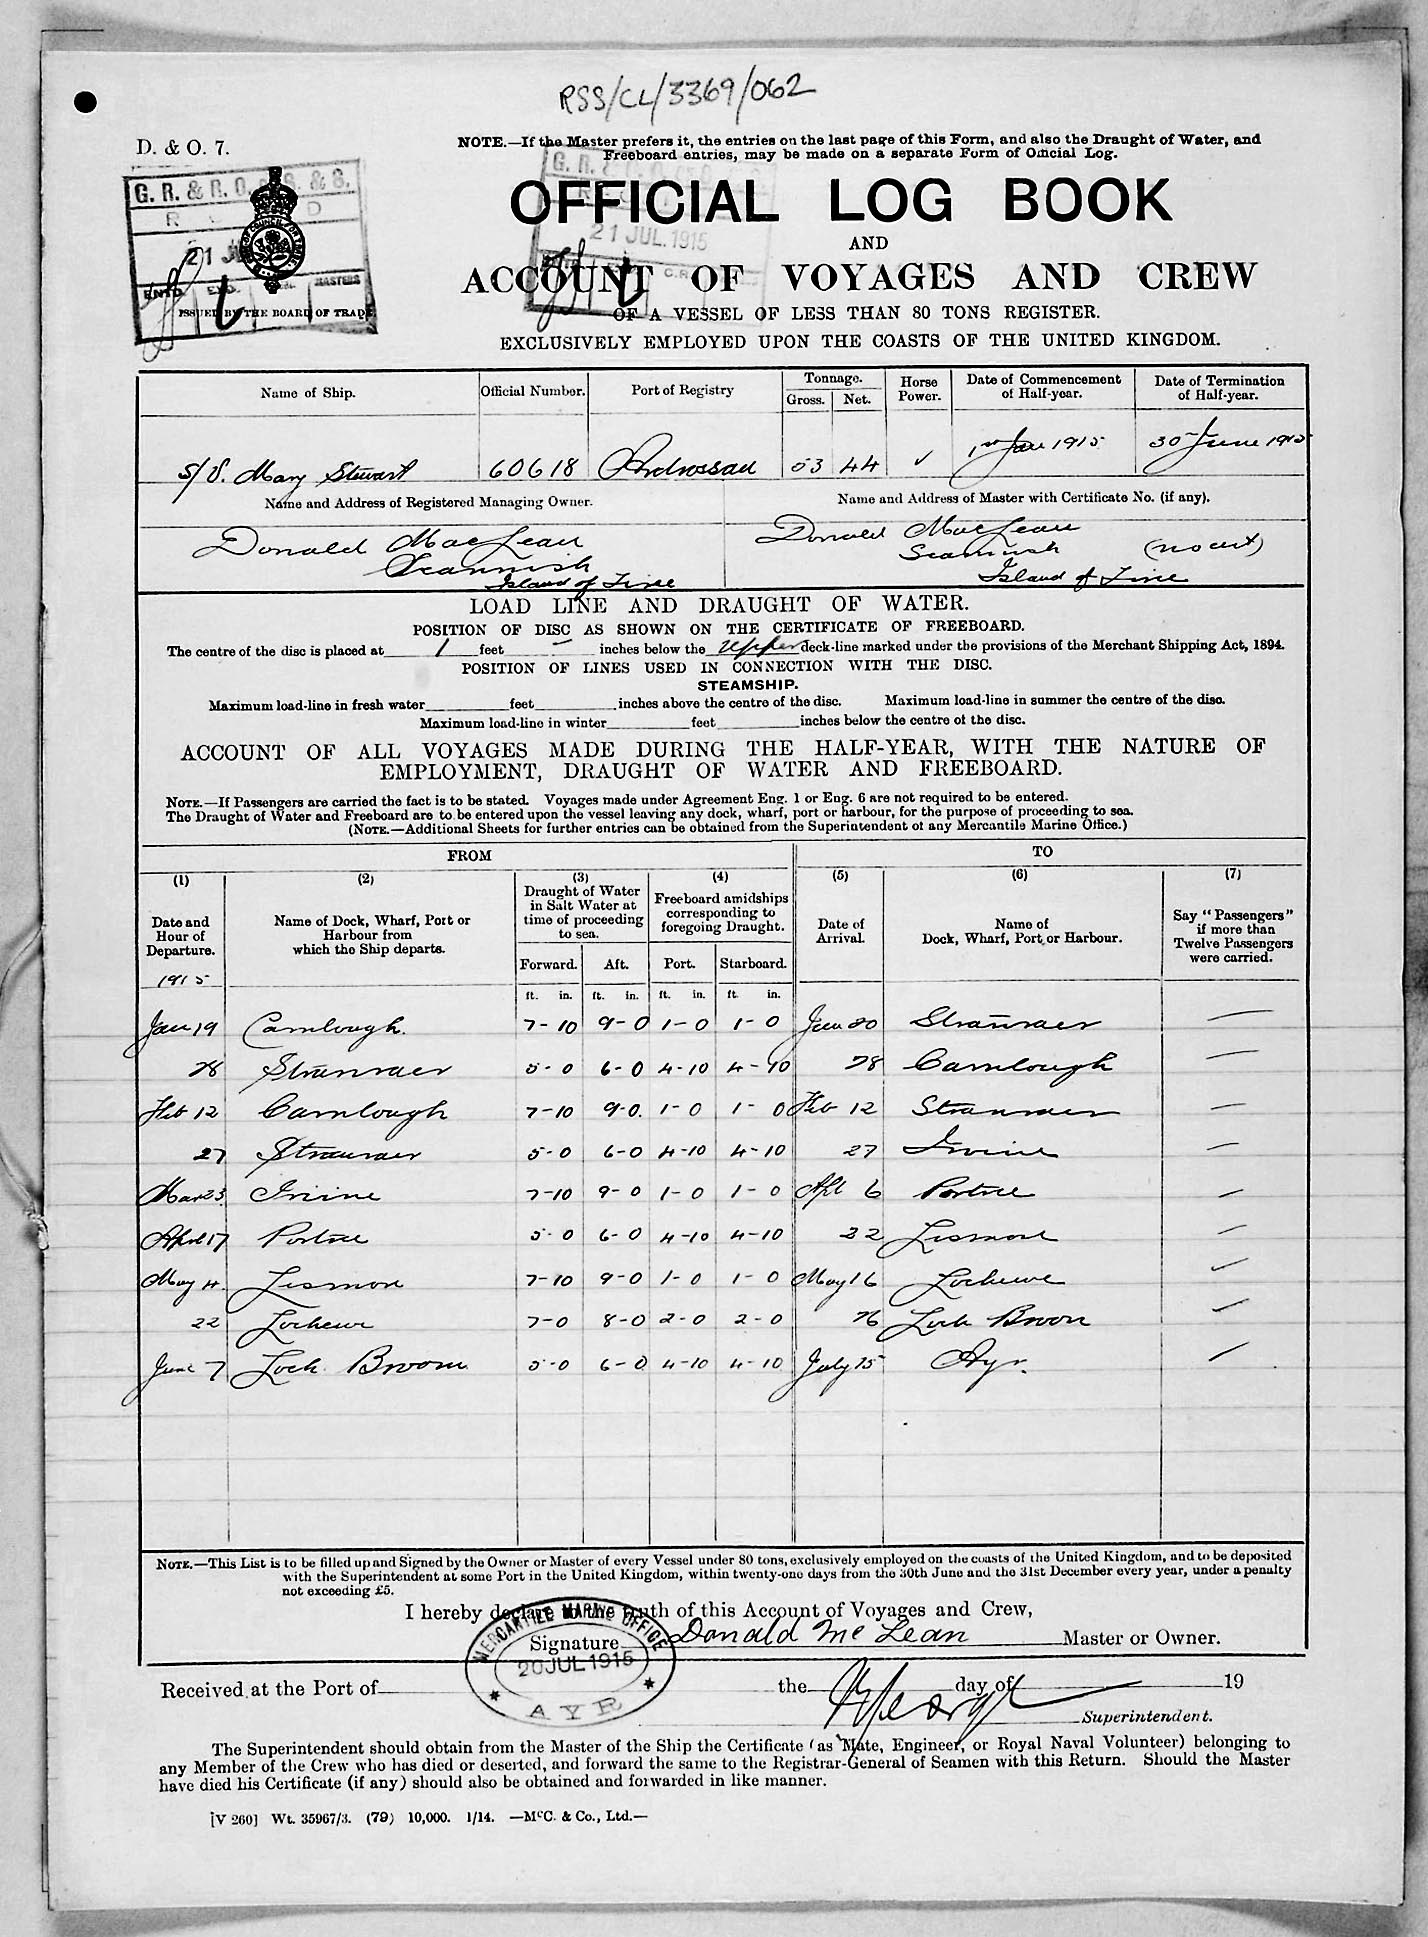 RSS/CL/3369/062
D. & O. 7.
NOTE.—If the Master prefers it, the entries on the last page of this Form, and also the Draught of Water, and
Freeboard entries, may be made on a separate Form of Official Log.
G. R. & R. O. S. & S.
21 JUL.1915
OFFICIAL LOG BOOK
AND
ACCOUNT OF VOYAGES AND CREW
ISSUED BY THE BOARD OF TRADE
OF A VESSEL OF LESS THAN 80 TONS REGISTER.
EXCLUSIVELY EMPLOYED UPON THE COASTS OF THE UNITED KINGDOM.
Name of Ship. Official Number. Port of Registry Tonnage. Gross. Net. Horse Power. Date of Commencement of Half-year. Date of Termination of Half-year.
S/V. Mary Stewart 60618 Ardrossan 53 44 1st Jan 1915 30 June 1915
Name and Address of Registered Managing Owner. Name and Address of Master with Certificate No. (if any).
Donald MacLean Donald MacLean
Scannish Scannish (no cert)
Island of Tiree Island of Tiree
LOAD LINE AND DRAUGHT OF WATER.
POSITION OF DISC AS SHOWN ON THE CERTIFICATE OF FREEBOARD.
The centre of the disc is placed at 1 feet — inches below the Upper deck-line marked under the provisions of the Merchant Shipping Act, 1894.
POSITION OF LINES USED IN CONNECTION WITH THE DISC.
STEAMSHIP.
Maximum load-line in fresh water feet inches above the centre of the disc. Maximum load-line in summer the centre of the disc.
Maximum load-line in winter feet inches below the centre of the disc.
ACCOUNT OF ALL VOYAGES MADE DURING THE HALF-YEAR, WITH THE NATURE OF
EMPLOYMENT, DRAUGHT OF WATER AND FREEBOARD.
NOTE.—If Passengers are carried the fact is to be stated. Voyages made under Agreement Eng. 1 or Eng. 6 are not required to be entered.
The Draught of Water and Freeboard are to be entered upon the vessel leaving any dock, wharf, port or harbour, for the purpose of proceeding to sea.
(NOTE.—Additional Sheets for further entries can be obtained from the Superintendent of any Mercantile Marine Office.)
FROM TO
(1) (2) (3) (4) (5) (6) (7)
Date and Hour of Departure. Name of Dock, Wharf, Port or Harbour from which the Ship departs. Draught of Water in Salt Water at time of proceeding to sea. Freeboard amidships corresponding to foregoing Draught. Date of Arrival. Name of Dock, Wharf, Port or Harbour. Say "Passengers" if more than Twelve Passengers were carried.
Forward. Aft. Port. Starboard.
1915
ft. in. ft. in. ft. in. ft. in.
Jan 19 Carnlough. 7-10 9-0 1-0 1-0 Jan 20 Stranraer —
28 Stranraer 5-0 6-0 4-10 4-10 28 Carnlough —
Feb 12 Carnlough 7-10 9-0. 1-0 1-0 Feb 12 Stranraer —
27 Stranraer 5-0 6-0 4-10 4-10 27 Irvine —
Mar 23 Irvine 7-10 9-0 1-0 1-0 Apl 6 Portree —
April 17 Portree 5-0 6-0 4-10 4-10 22 Lismore —
May 4 Lismore 7-10 9-0 1-0 1-0 May 16 Lochewe —
22 Lochewe 7-0 8-0 2-0 2-0 26 Loch Broom —
June 7 Loch Broom 5-0 6-0 4-10 4-10 July 15 Ayr. —
NOTE.—This List is to be filled up and Signed by the Owner or Master of every Vessel under 80 tons, exclusively employed on the coasts of the United Kingdom, and to be deposited
with the Superintendent at some Port in the United Kingdom, within twenty-one days from the 30th June and the 31st December every year, under a penalty
not exceeding £5.
I hereby declare to the truth of this Account of Voyages and Crew,
Signature Donald McLean Master or Owner.
MERCANTILE MARINE OFFICE
20 JUL 1915
AYR
Received at the Port of the day of 19
Superintendent.
The Superintendent should obtain from the Master of the Ship the Certificate (as Mate, Engineer, or Royal Naval Volunteer) belonging to
any Member of the Crew who has died or deserted, and forward the same to the Registrar-General of Seamen with this Return. Should the Master
have died his Certificate (if any) should also be obtained and forwarded in like manner.
[V 260] Wt. 35967/3. (79) 10,000. 1/14. —McC. & Co., Ltd.—